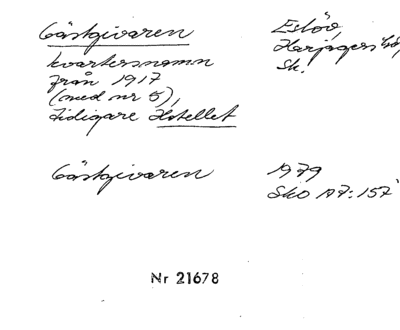 Gästgivaren
kvartersnamn
från 1917
(med nr 5),
tidigare Hotellet
Eslöv,
Harjagers hd,
Sk.
Gästgivaren
1979
Sko A7:157
Nr 21678